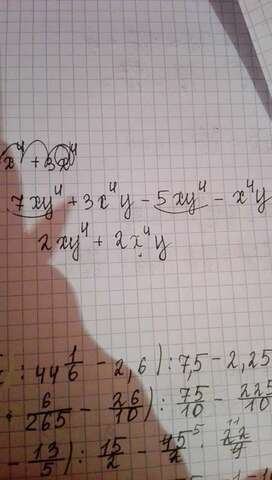 x⁴ + 3x⁴
7xy⁴ + 3x⁴y - 5xy⁴ - x⁴y
2xy⁴ + 2x⁴y
: 44 1/6 - 2,6) : 7,5 - 2,25
6/265 - 26/10) : 75/10 - 225
- 13/5) : 15/2 - 45/2 ·